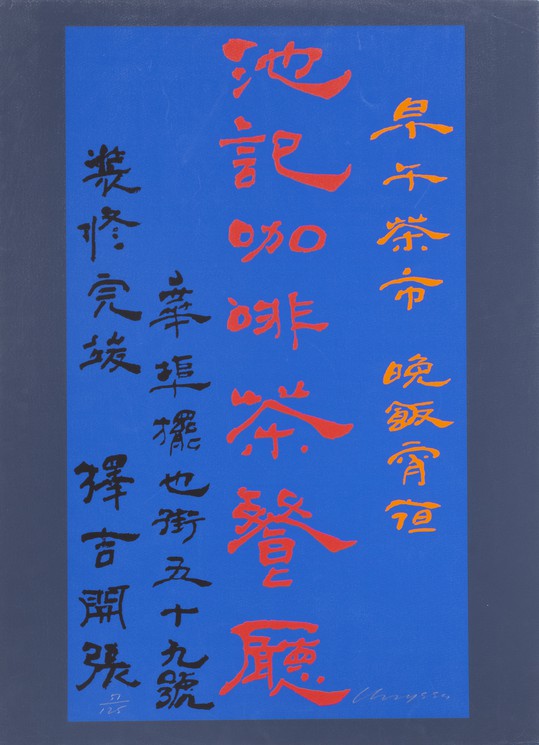 早午茶市 晚飯宵亱
池記咖啡茶餐廳
華埠擺也街五十九號
裝修完竣 擇吉開張
51/125
Chryssa